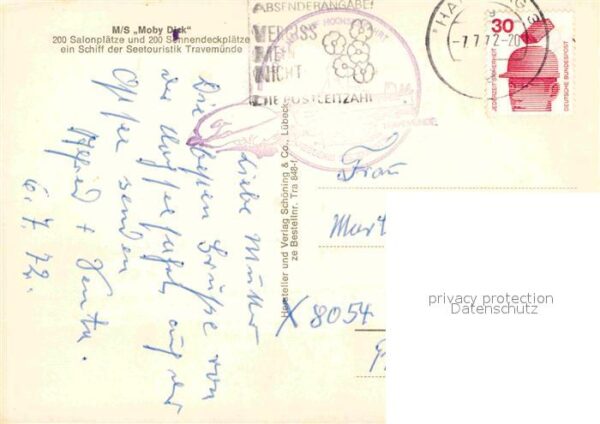 M/S „Moby Dick“
200 Salonplätze und 200 Sonnendeckplätze
ein Schiff der Seetouristik Travemünde
ABSENDERANGABE!
VERGISS
MEIN
NICHT
DIE POSTLEITZAHL
-7.7.72-20
30
JEDERZEIT SICHERHEIT
DEUTSCHE BUNDESPOST
Liebe Mutter
Die besten Grüße von
der auf der
Ostsee senden
Alfred +
6.7.72.
Hersteller und Verlag Schöning & Co., Lübeck
Frau
X 8054
privacy protection
Datenschutz